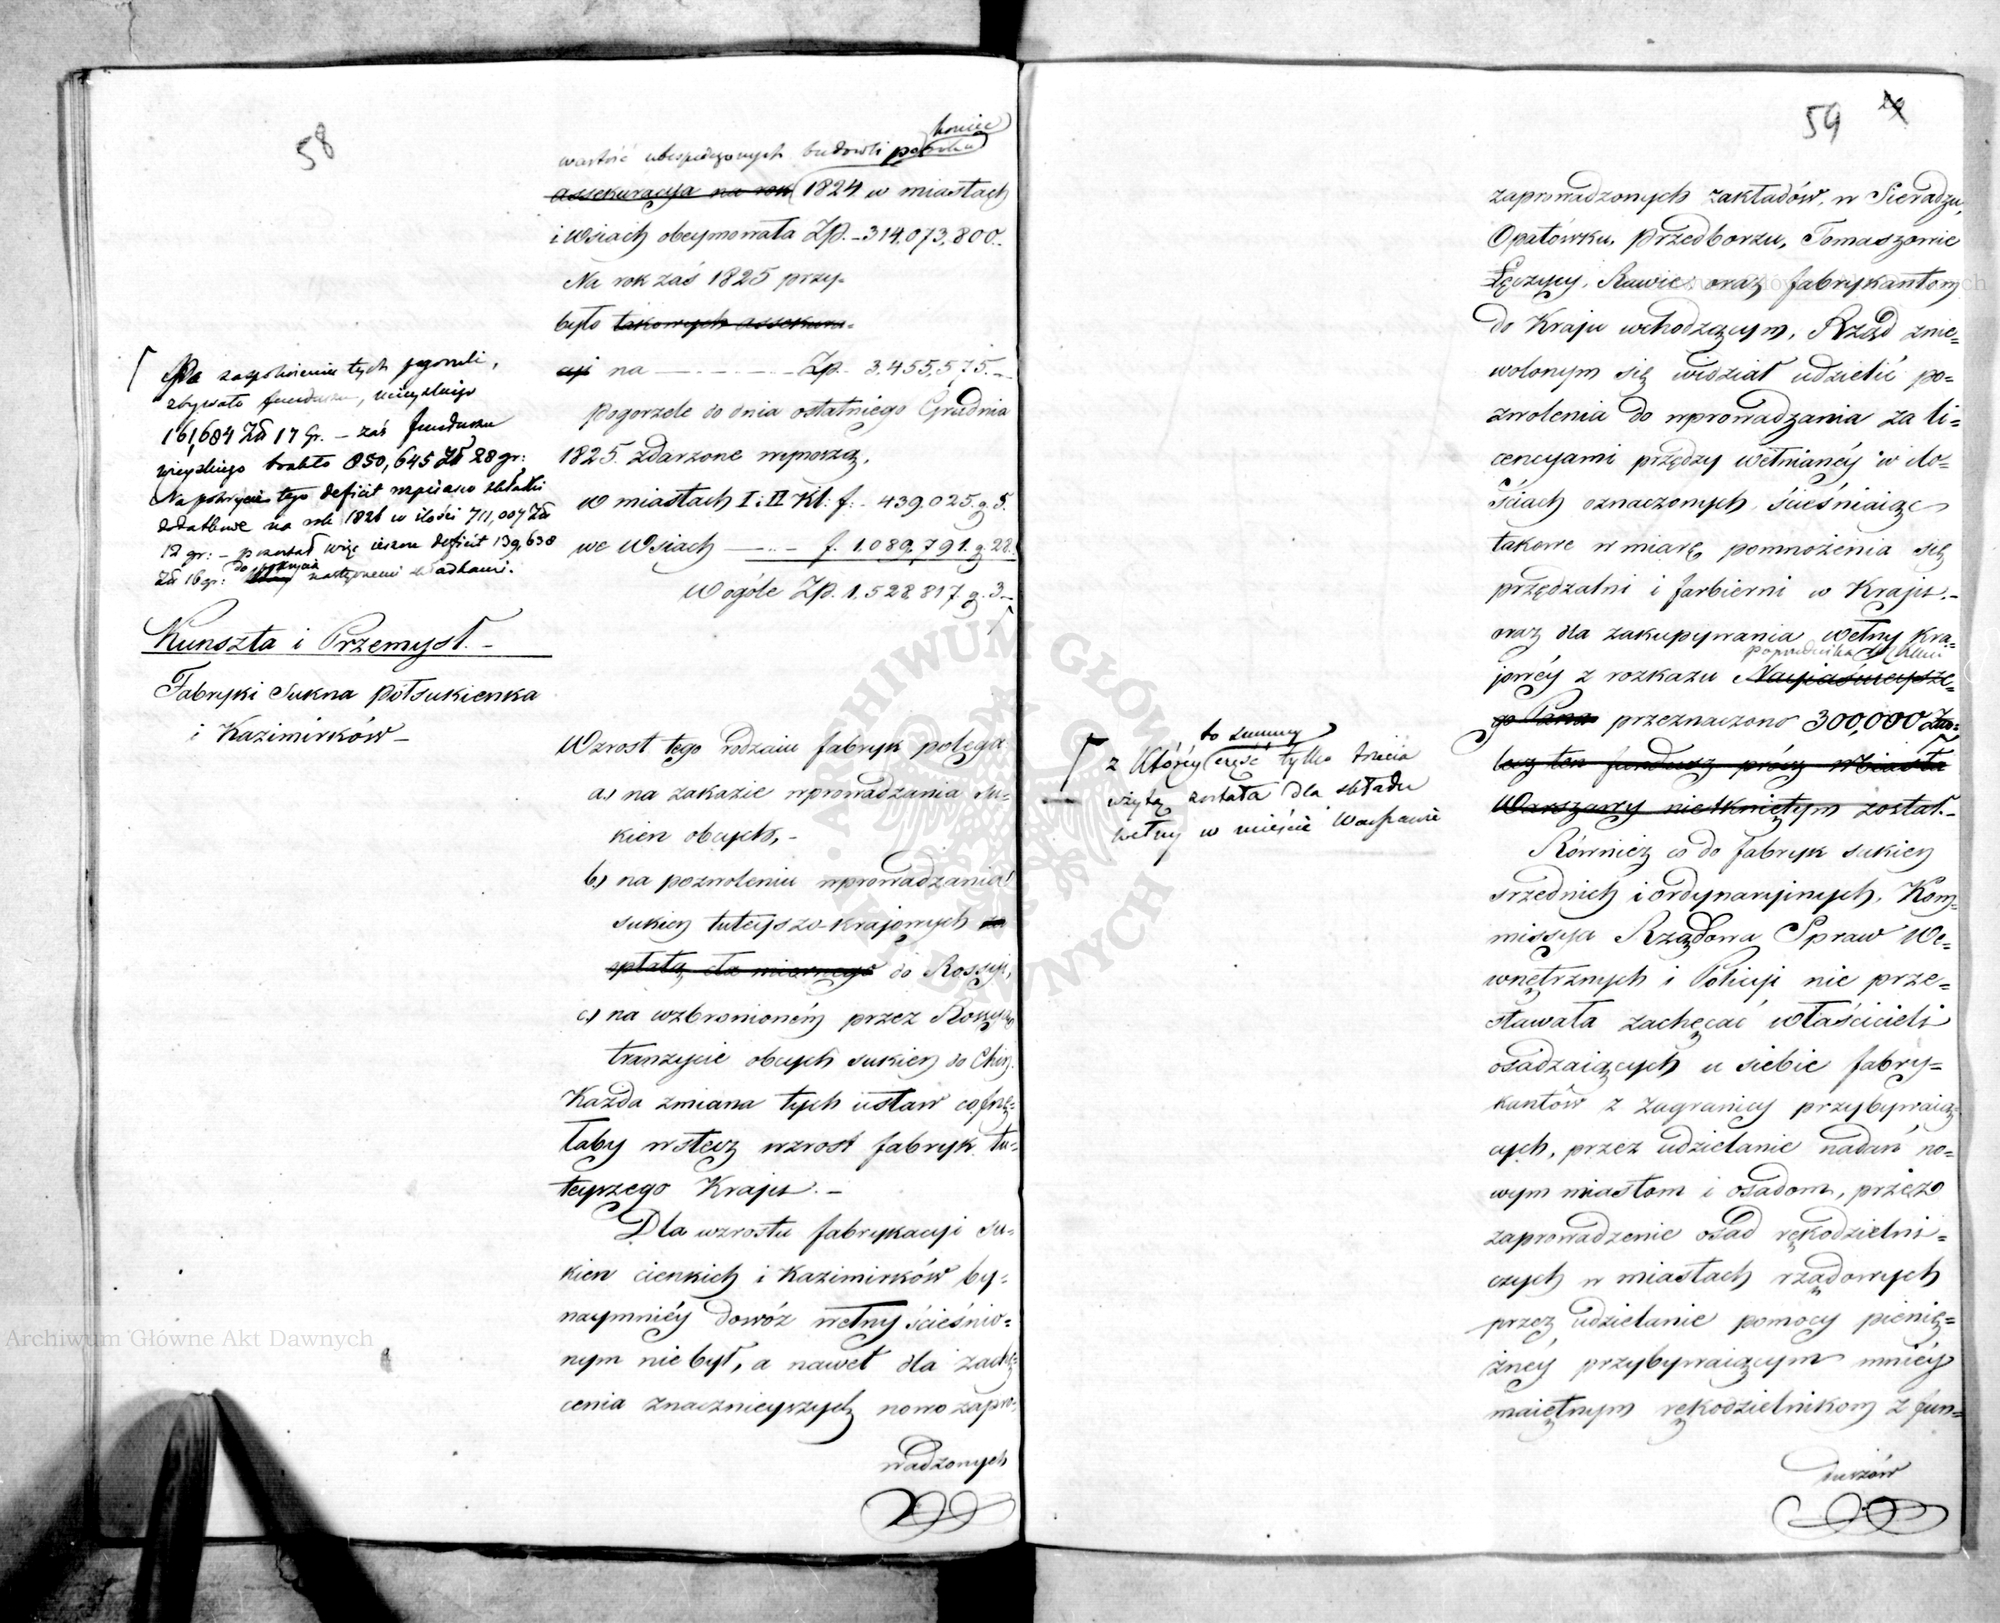 58
koniec
wartość ubespieczonych budowli
assekuracyja na rok 1824 w miastach
i Wsiach obeymowała Zp. 314,073,800.
Na rok zaś 1825 przy-
było takowych assekura-
cyi na Zp. 3,455,575.
Pogorzele do dnia ostatniego Grudnia
1825. zdarzone wynoszą,
w miastach I i II Kl: f. 439,025. g. 5.
we Wsiach f. 1,089,791. g. 28.
Wogóle Zp. 1,528,817. g. 3
Na zaspokoienie tych pogorzeli,
zbywało funduszu, mieyskiego
161,684 Zł 17 Gr. – zaś funduszu
wieyskiego brakło 850,645 Zł 28 gr:
Na pokrycie tego deficit wpisano składki
dodatkowe na rok 1826 w ilości 711,007 Zł
12 gr: – pozostał więc ieszcze deficit 139,638
Zł 16 gr: do pokrycia następnemi składkami.
Kunszta i Przemysł. –
Fabryki Sukna półsukienka
i Kazimirków –
Wzrost tego rodzaiu fabryk polega
a.) na zakazie wprowadzania su-
kien obcych, –
b.) na pozwoleniu wprowadzania
sukien tuteyszo-krajowych za
opłatą cła miernego do Rossyi,
c.) na wzbronioném przez Rossyą
tranzycie obcych sukien do Chin.
Każda zmiana tych ustaw cofnę-
łaby wstecz wzrost fabryk tu-
teyszego Kraju. –
Dla wzrostu fabrykacyi su-
kien cienkich i Kazimirków by-
naymniéy dowóz wełny ścieśnio-
nym nie był, a nawet dla zachę-
cenia znacznieyszych nowo zapro-
wadzonych
59
zaprowadzonych zakładów, w Sieradzu,
Opatówku, Przedborzu, Tomaszowie
Łęczycy, Rawie oraz fabrykantom
do Kraju wchodzącym, Rząd znie-
wolonym się widział udzielić po-
zwolenia do wprowadzania za li-
cencyami przędzy wełnianéy w ilo-
ściach oznaczonych, ścieśniaiąc
takowe w miarę pomnożenia się
przędzalni i farbierni w Kraju. –
oraz dla zakupywania wełny kra-
poprzednika
jowéy z rozkazu Nayjaśnieysze-
go Pana przeznaczono 300,000 Zło:
lecz ten fundusz prócz Miasta
Warszawy nietkniętym został. –
to summy
z któréy część tylko trzecia
użytą została dla składu
wełny w mieście Warszawie
Również co do fabryk sukien
średnich i ordynaryinych, Kom-
missya Rządowa Spraw We-
wnętrznych i Policyi nie prze-
stawała zachęcać właścicieli
osadzaiących u siebie fabry-
kantów z zagranicy przybywaią-
cych, przez udzielanie nadań no-
wym miastom i osadom, przez
zaprowadzenie osad rękodzielni-
czych w miastach rządowych
przez udzielanie pomocy pienię-
żnéy przybywaiącym mniéy
maiętnym rękodzielnikom z fun-
duszów
Archiwum Główne Akt Dawnych
ARCHIWUM GŁÓWNE AKT DAWNYCH